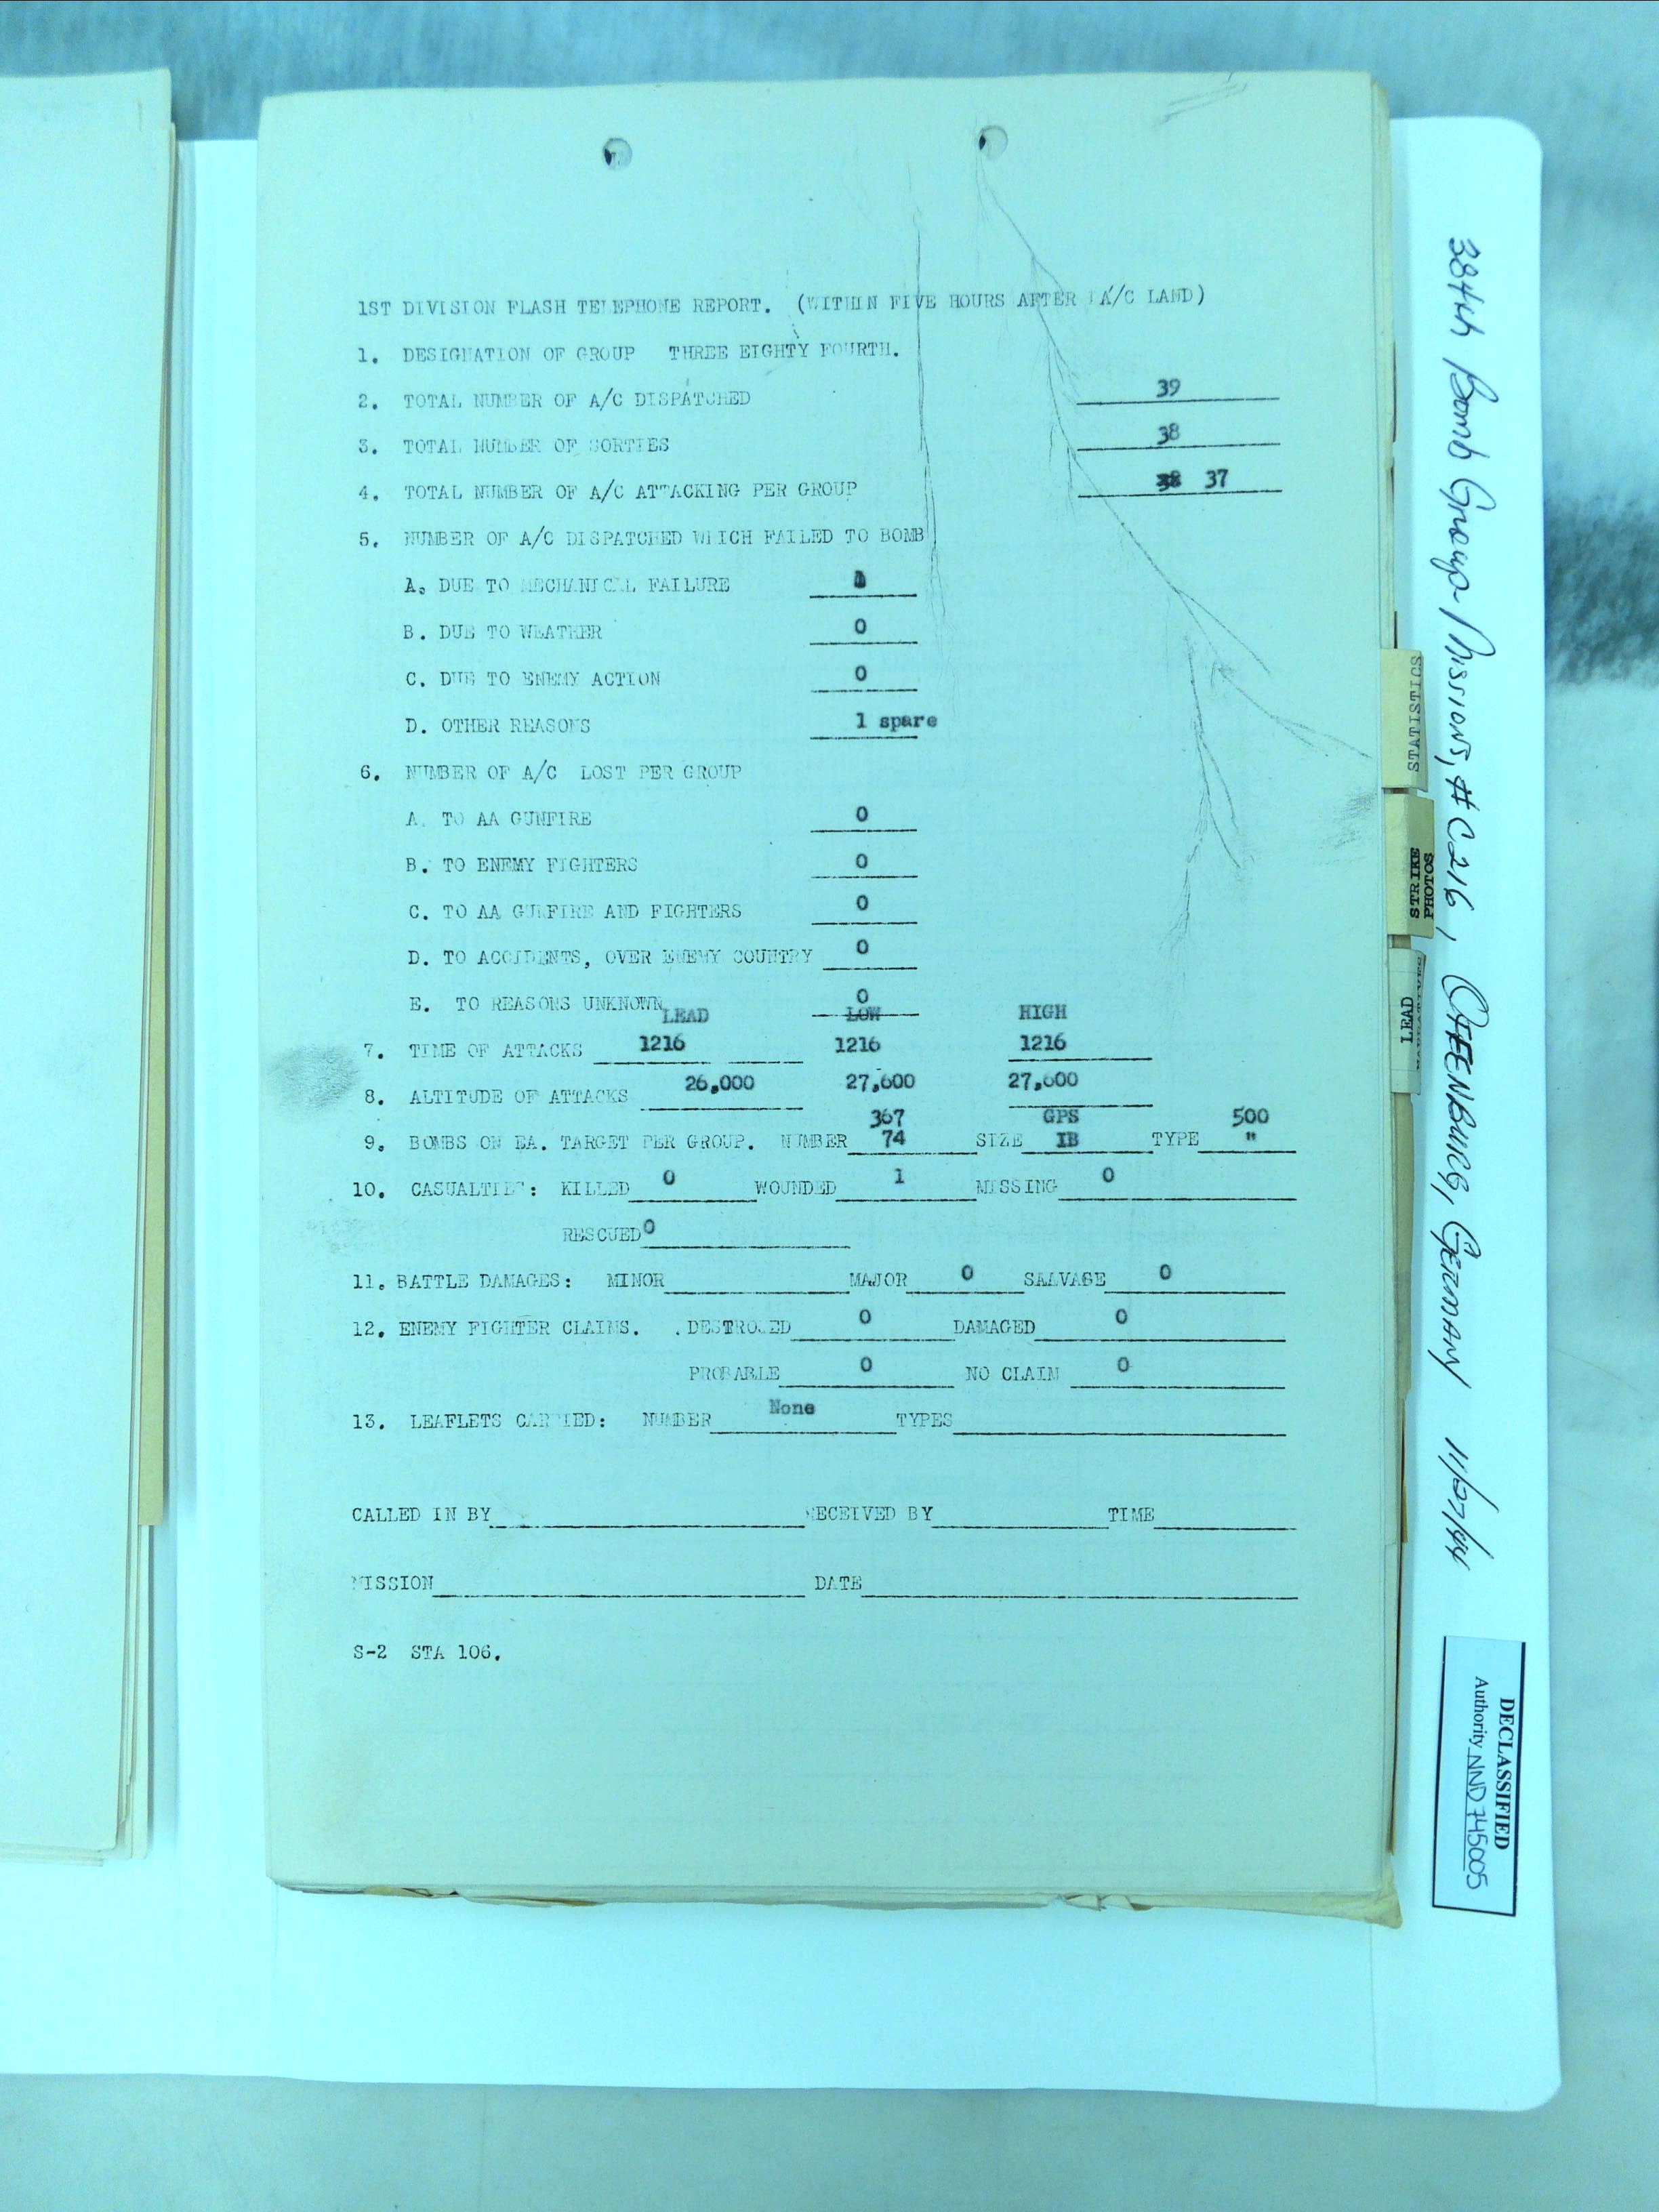 1ST DIVISION FLASH TELEPHONE REPORT. (WITHIN FIVE HOURS AFTER A/C LAND)
1. DESIGNATION OF GROUP THREE EIGHTY FOURTH.
2. TOTAL NUMBER OF A/C DISPATCHED 39
3. TOTAL NUMBER OF SORTIES 38
4. TOTAL NUMBER OF A/C ATTACKING PER GROUP 37
5. NUMBER OF A/C DISPATCHED WHICH FAILED TO BOMB
A. DUE TO MECHANICAL FAILURE
B. DUE TO WEATHER 0
C. DUE TO ENEMY ACTION 0
D. OTHER REASONS 1 spare
6. NUMBER OF A/C LOST PER GROUP
A. TO AA GUNFIRE 0
B. TO ENEMY FIGHTERS 0
C. TO AA GUNFIRE AND FIGHTERS 0
D. TO ACCIDENTS, OVER ENEMY COUNTRY 0
E. TO REASONS UNKNOWN 0
LEAD LOW HIGH
7. TIME OF ATTACKS 1216 1216 1216
8. ALTITUDE OF ATTACKS 26,000 27,600 27,600
367 GPS 500
9. BOMBS ON EA. TARGET PER GROUP. NUMBER 74 SIZE IB TYPE "
10. CASUALTIES: KILLED 0 WOUNDED 1 MISSING 0
RESCUED 0
11. BATTLE DAMAGES: MINOR MAJOR 0 SALVAGE 0
12. ENEMY FIGHTER CLAIMS. DESTROYED 0 DAMAGED 0
PROBABLE 0 NO CLAIM 0
13. LEAFLETS CARRIED: NUMBER None TYPES
CALLED IN BY RECEIVED BY TIME
MISSION DATE
S-2 STA 106.
STATISTICS
STRIKE
PHOTOS
LEAD
384th Bomb Group Missions, #C216, OFFENBURG, GERMANY 11/27/44
DECLASSIFIED
Authority NND 745005